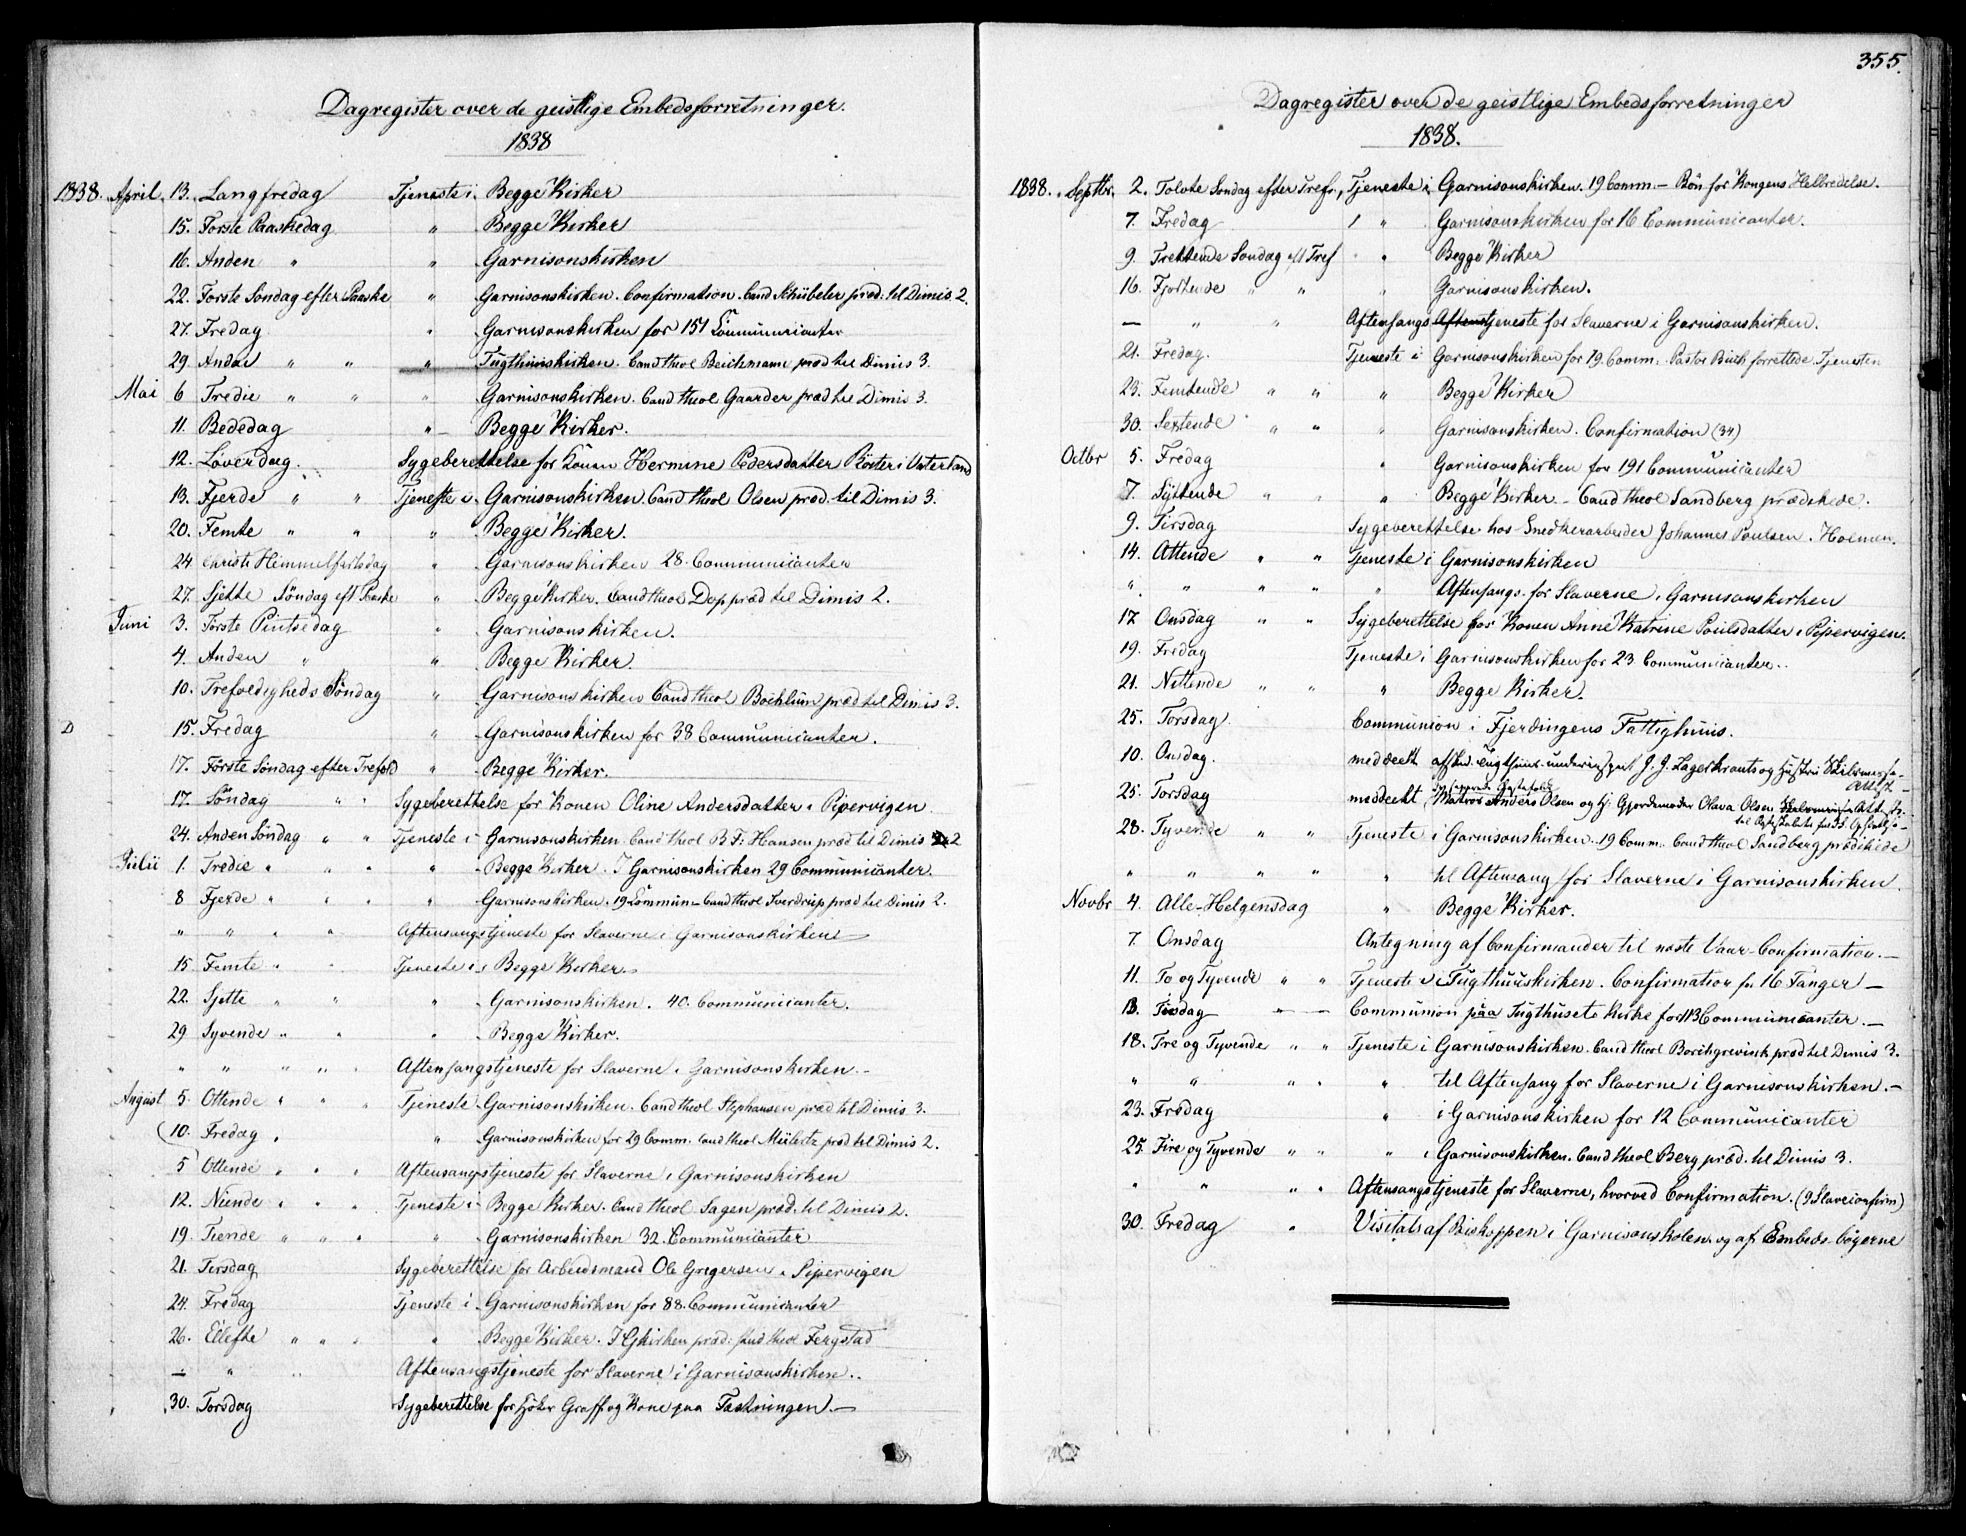 Dagregister over de geistlige Embedsforretninger.
1838
1838. April. 13. Langfredag Tjeneste i Begge Kirker
15. Første Paaskedag " Begge Kirker
16. Anden " " Garnisonskirken
22. Første Søndag efter Paaske " Garnisonskirken. Confirmation. Cand Schübeler præd: til Dimis. 2.
27. Fredag " Garnisonskirken for 151 Communicanter
29. Anden " " " Tugthuuskirken. Cand theol Beichmann præd til Dimis 3.
Mai 6 Tredie " " " Garnisonskirken. Cand theol Gaarder præd til Dimis 3.
11. Bededag " Begge Kirker.
12. Löverdag. Sygeberettelse for Konen Hermine Pedersdatter Röster i Vaterland
13. Fjerde " " Tjeneste i Garnisonskirken Cand theol Olsen præd. til Dimis 3.
20. Femte " " " Begge Kirker.
24 Christi Himmelfartsdag " Garnisonskirken 28. Communicanter
27. Sjette Söndag eft Paaske " Begge Kirker. Cand theol Dop præd til Dimis 2.
Juni 3. Første Pintsedag " Garnisonskirken.
4. Anden " " Begge Kirker.
10. Trefoldigheds Söndag " Garnisonskirken Cand theol Bochlum præd til Dimis 3.
D 15. Fredag " Garnisonskirken for 38 Communicanter.
17. Förste Söndag efter Trefold " Begge Kirker.
17. Söndag " " Sygeberettelse for Konen Oline Andersdatter i Pipervigen
24. Anden Söndag " " Tjeneste i Garnisonskirken Cand theol B. F. Hansen præd til Dimis 2
Julii 1. Tredie " " " " Begge Kirker. I Garnisonskirken 29 Communicanter.
8 Fjerde " " " " Garnisonskirken. 19 Commun - Cand theol Sverdrup præd til Dimis 2.
" " " " Aftensangstjeneste for Slaverne i Garnisonskirken —
15 Femte " " Tjeneste i Begge Kirker.
22. Sjette " " " Garnisonskirken. 40. Communicanter.
29 Syvende " " " Begge Kirker.
" " " " " Aftensangstjeneste for Slaverne i Garnisonskirken. -
August 5. Ottende " " " Tjeneste i Garnisonskirken. Cand theol Stephansen præd til Dimis 3.
(10. Fredag " " Garnisonskirken for 29 Comm. Cand theol præd til Dimis 2.
5 Ottende " " " Aftensangstjeneste for Slaverne i Garnisonskirken
12. Niende " " " Tjeneste i Begge Kirker. Cand theol Sagen præd. til Dimis 2.
19. Tiende " " " " Garnisonskirken 32. Communicanter
21. Tirsdag Sygeberettelse for Arbeidsmand Ole Gregersen i Pipervigen
24. Fredag Tjeneste i Garnisonskirken for 88. Communicanter
26. Ellefte " " " " Begge Kirker. I Gkirken præd: Stud theol Fergstad
— " " Aftensangstjeneste for Slaverne i Garnisonskirken..
30. Torsdag Sygeberettelse for Höker Graff og Kone paa Fæstningen. —
355.
Dagregister over de geistlige Embedsforretninger
1838.
1838. Septbr. 2. Tolvte Søndag efter Trefr., Tjeneste i Garnisonskirken. 19 Comm — Bön for Kongens Helbredelse.
7. Fredag " " Garnisonskirken for 16 Communicanter.
9. Trettende Søndag eft Tref " Begge Kirker
16. Fjortende " " " Garnisonskirken.
— " " Aftensangs tjeneste for Slaverne i Garnisonskirken.
21. Fredag. Tjeneste i Garnisonskirken for 79 Comm. Pastor forrettede Tjenesten
23. Femtende " " " Begge Kirker
30. Sextende " " " Garnisonskirken. Confirmation (34)
Octbr 5. Fredag " Garnisonskirken for 191 Communicanter
7. Syttende " " " Begge Kirker. - Cand theol Sandberg prædikede.
9. Tirsdag Sygeberettelse hos Snedkerarbeider Johannes Poulsen. Holmen.
14. Attende " " Tjeneste i Garnisonskirken
" " " " " Aftensangs. for Slaverne i Garnisonskirken
17 Onsdag " " Sygeberettelse for Konen Anne Katrine Poulsdatter i Pipervigen.
19. Fredag Tjeneste i Garnisonskirken for 23 Communicanter..
21. Nittende " " " Begge Kirker.
25. Torsdag. Communion i Fjerdingens Fattighuus.
10. Onsdag. meddeelt J. J. Lagerkrants og Hustru Attest -
25. Torsdag meddeelt Matros Anders Olsen og Gjordemoder Olava Olsen
28. Tyvende " " Tjeneste i Garnisonskirken. 19 Comm. Cand theol Sandberg prædikede
" " " " " til Aftensang for Slaverne i Garnisonskirken.
Novbr 4. Alle-Helgensdag " Begge Kirker.
7. Onsdag Antegning af Confirmander til næste Vaar-Confirmation. —
11. To og Tyvende " " Tjeneste i Tugthuuskirken. Confirmation for 16 Fanger —
13. Tirsdag Communion paa Tugthusets Kirke for 113 Communicanter. —
18. Tre og Tyvende " " Tjeneste i Garnisonskirken. Cand theol Borchgrevink præd til Dimis 3.
" " " " " til Aftensang for Slaverne i Garnisonskirken. -
23. Fredag " i Garnisonskirken for 12 Communicanter
25. Fire og Tyvende " " " i Garnisonskirken. Cand theol Berg præd. til Dimis 3.
" " " " Aftensangstjeneste for Slaverne, hvorved Confirmation. (9 Slaver confirm)
30. Fredag " Visitats af Biskoppen i Garnisonsskolen og af Embeds-bögerne